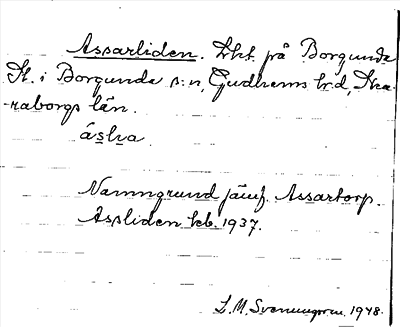 Assarliden. Lht. på Borgunda
St. i Borgunda s:n, Gudhems hrd, Ska-
raborgs län.
Namngrund jämf. Assartorp.
Aspliden keb. 1937.
L. M. Svenungsson. 1948.